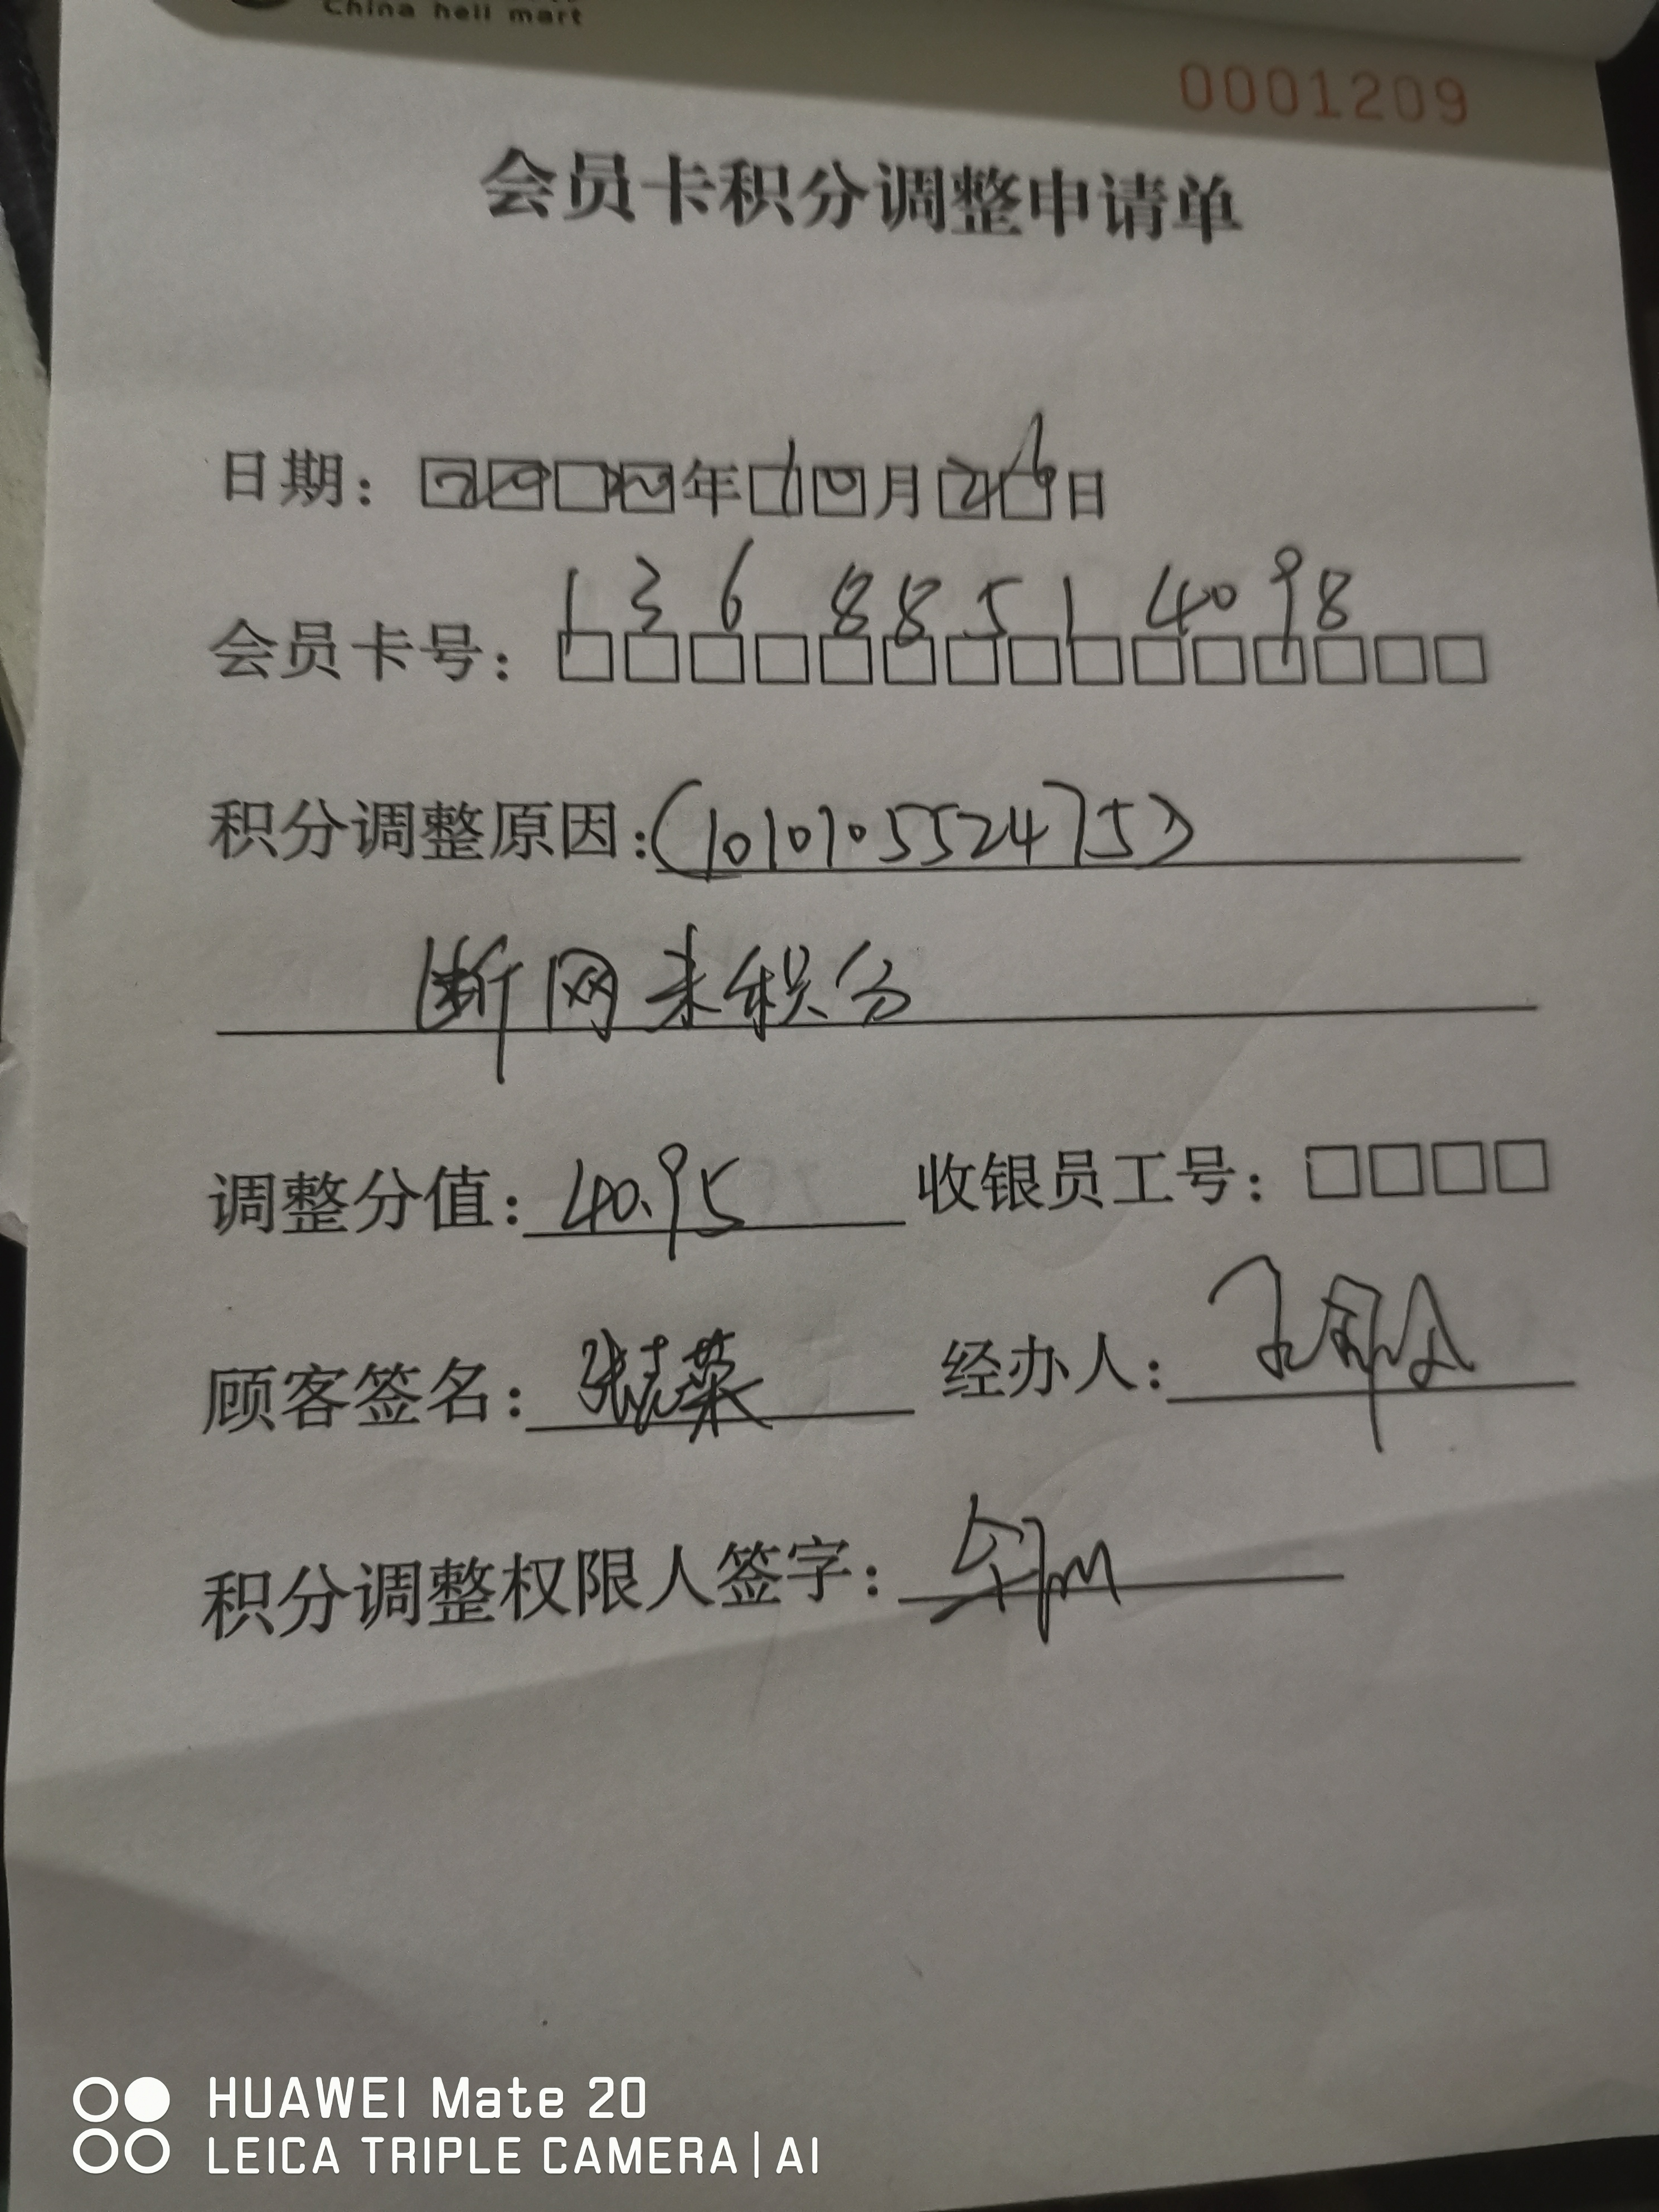 China heli mart
0001209
会员卡积分调整申请单
日期：2022年10月26日
会员卡号：13688514098
积分调整原因：(1010105524753)
断网未积分
调整分值：40.95 收银员工号：□□□□
顾客签名：张志荣 经办人：
积分调整权限人签字：
HUAWEI Mate 20
LEICA TRIPLE CAMERA | AI